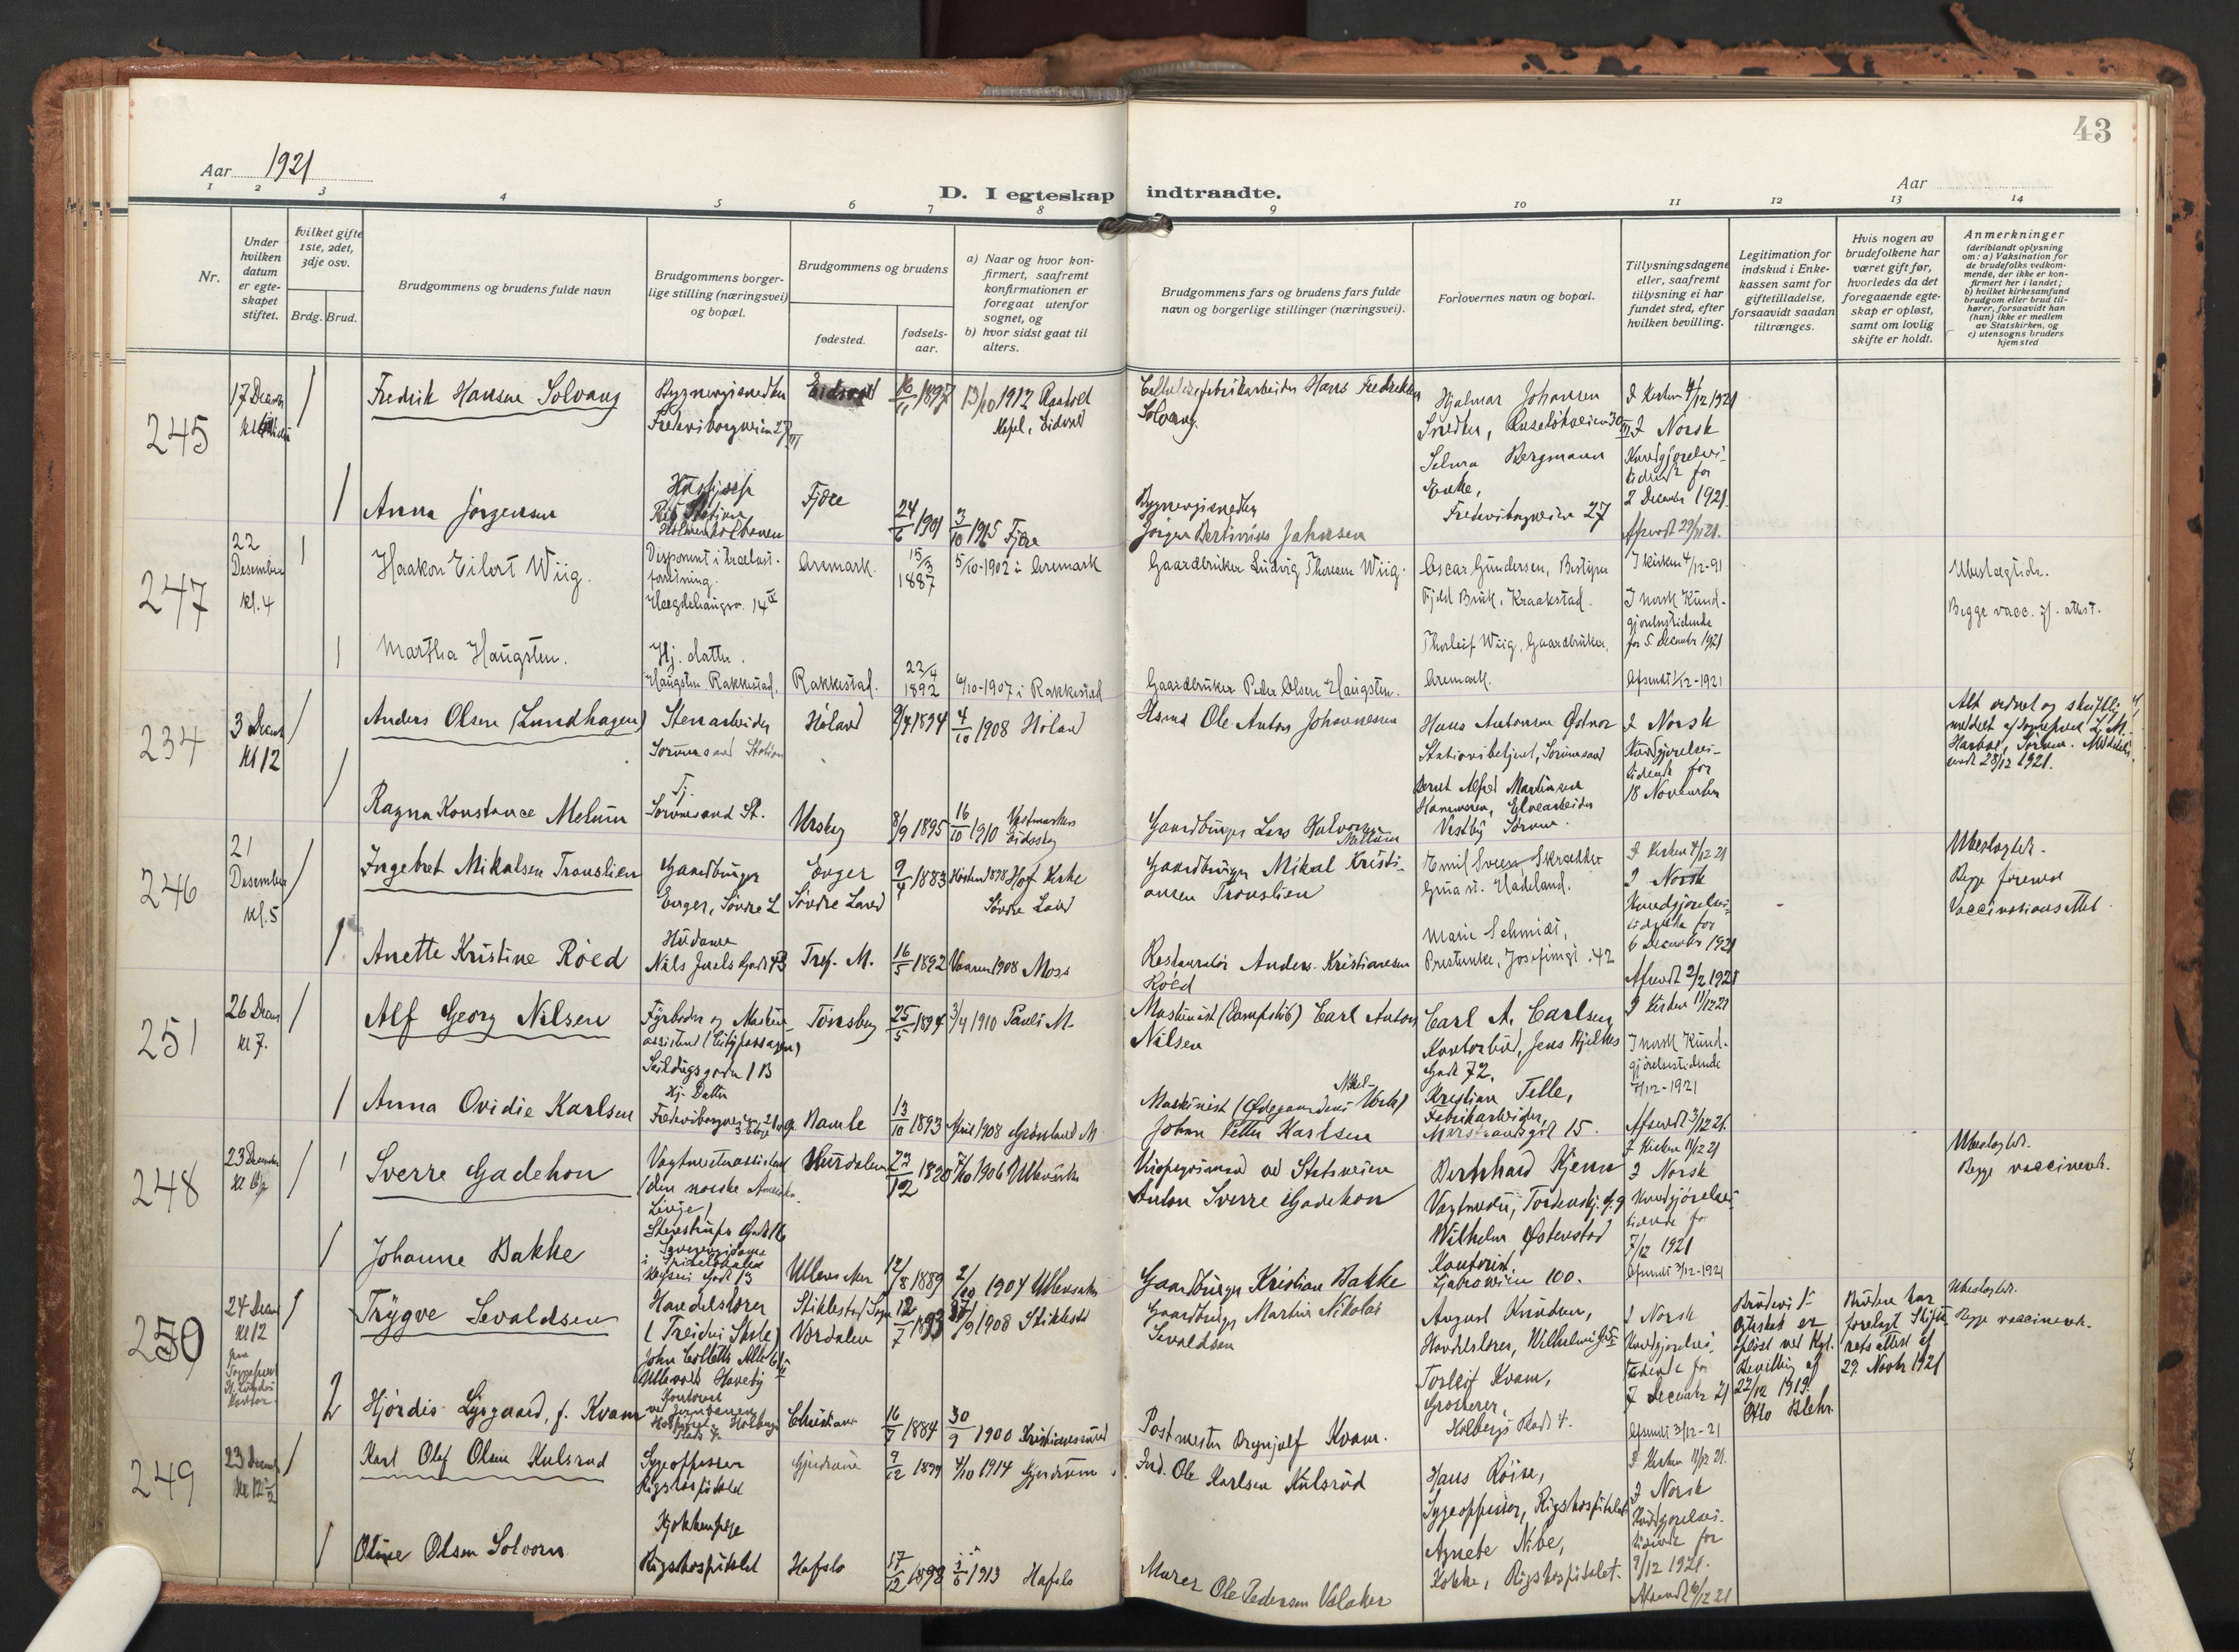 43
Aar 1921
Aar
D. I egteskap indtraadte.
1 2 3 4 5 6 7 8 9 10 11 12 13 14
Nr.
Under hvilken datum er egteskapet stiftet.
Hvilket gifte 1ste, 2det, 3dje osv.
Brdg. Brud.
Brudgommens og brudens fulde navn
Brudgommens borgerlige stilling (næringsvei) og bopæl.
Brudgommens og brudens
fødested.
fødselsaar.
a) Naar og hvor konfirmert, saafremt konfirmationen er foregaat utenfor sognet, og
b) hvor sidst gaat til alters.
Brudgommens fars og brudens fars fulde navn og borgerlige stillinger (næringsvei).
Forlovernes navn og bopæl.
Tillysningsdagene eller, saafremt tillysning ei har fundet sted, efter hvilken bevilling.
Legitimation for indskud i Enkekassen samt for giftetilladelse, forsaavidt saadan tiltrænges.
Hvis nogen av brudefolkene har været gift før, hvorledes da det foregaaende egteskap er opløst, samt om lovlig skifte er holdt.
Anmerkninger
(deriblandt oplysning om: a) Vaksination for de brudefolks vedkommende, der ikke er konfirmert her i landet;
b) hvilket kirkesamfund brudgom eller brud tilhører, forsaavidt han (hun) ikke er medlem av Statskirken, og
c) utensogns bruders hjemsted
245
17 Decem
Fredrik Hansen Solvang
Bygningssnedker
Eidsvold
16/11 1897
13/10 1912 Raaholt Kapel, Eidsvold
Cellulosefabrikarbeider Hans Fredriksen Solvang
Hjalmar Johansen
Snedker, Ruseløkveien 30 III
Selma Bergmann
Enke,
Fredensborgveien 27
I Kirken 4/12 1921
I Norsk
Kundgjørelsestidende for
2 December 1921
Afsendt 29/11 21.
Anna Jörgensen
Ris Station
Holmenkolbanen
Fjære
24/6 1901
3/10 1915 Fjære
Bygningssnedker
Jörgen Bertinius Johnsen
247
22 Desember kl. 4
Haakon Eilert Wiig.
Disponent i trælastforretning.
Hægdehaugsv. 14 IV
Aremark.
15/3 1887
5/10-1902 i Aremark
Gaardbruker Ludvig Thoresen Wiig.
Oscar Gundersen, Bestyrer
Fjeld Bruk, Kraakstad.
Thorleif Wiig, Gaardbruker,
Aremark.
I kirken 4/12-91
I norsk Kundgjørelsestidende
for 5. December 1921
Afsendt 1/12-1921
Ubeslægtede.
Begge vacc. if. attest.
Martha Haugsten.
Hj. datter.
Haugsten Rakkestad.
Rakkestad.
22/4 1892
6/10-1907 i Rakkestad
Gaardbruker Peder Olsen Haugsten.
234
3 Decem Kl 12
Anders Olsen (Lundhagen)
Stenarbeider
Sörumsand Station
Höland
9/7 1894
4/10 1908 Höland
Husmd Ole Anton Johannessen
Hans Antonsen Østnor
Stationsbetjent, Sörumsand
Bernt Alfred Martinsen
Hammeren, Elvearbeider
Vestby Sörum.
I Norsk
Kundgjørelsestidende for
18 November
Alt ordnet og skriftlig
meldt af sogneprest
28/12 1921.
Ragna Konstance Melum
Tj.
Sörumsand St.
Urskog
8/9 1895
16/10 1910 Vestmarken Eidskog
Gaardbruger Lars Halvorsen Mellum
246
21 Desember kl. 5
Ingebret Mikalsen Tronslien
Gaardbruger
Enger, Söndre L
Enger
Söndre Land
9/4 1883
Hösten 1898 Hof Kirke
Söndre Land
Gaardbruger Mikal Kristiansen Tronslien
Emil Svensen Skrædder
Gran st. Hadeland.
Marie Schmidt,
Prestenke, Josefinesgt. 42
I Kirken 4/12 21
I Norsk
Kundgjørelsestidende for
6 December 1921
Afsendt 2/12 1921
Ubeslægtede.
Begge forevist
Vaccinationsattest.
Anette Kristine Röed
Husdame
Niels Juels Gade 43
Tref. M.
16/5 1892
Vaaren 1908 Moss
Restauratör Anders Kristiansen Röed
251
26 Decem kl 7.
Alf Georg Nilsen
Fyrböder og Maskinassistent (Citypassagen)
Seilduksgaden 1 B
Tönsberg
25/5 1894
3/4 1910 Pauls M.
Maskinist (Dampskib) Carl Anton Nilsen
Carl A. Carlsen
Kontorbud, Jens Bjelkes Gade 72.
Kristian Telle,
Fabrikarbeider,
Marstrandsgt 15.
I Kirken 11/12 21
I norsk Kundgjørelsestidende
7/12-1921
Afsendt 3/12 21.
Anna Ovidie Karlsen
Hj. Datter
Bamle
13/10 1893
April 1908 Grönland M.
Maskinist (Ödegaardens Nikel-Verk)
Johan Petter Karlsen
248
23 December
Sverre Gadehon
Vagtmesterassistent
(den norske Amerikalinje)
Stenstrups Gade 16
Hurdalen
23/12 1880
7/10 1906 Ullensaker
Anton Sverre Gadehon
Bernhard Hjem
Wilhelm Østenstad
Kontorist,
Ljabroveien 100.
I Kirken 11/12 21
I Norsk
Kundgjörelsestidende for
7/12 1921
Afsendt 3/12-1921
Ubeslægtede.
Begge vaccinerede.
Johanne Bakke
Ullensaker
12/8 1889
2/10 1904 Ullensaker
Gaardbruger Kristian Bakke
250
24 Decem Kl 12
Trygve Sevaldsen
Handelslærer
(Treiders Skole)
John Colletts Alle
Ullevaal Haveby
Stiklestad Sogn
Værdalen
12/7 1893
1908 Stiklestad
Gaardbruger Martin Nikolai Sevaldsen
August Knudsen,
Handelslærer,
Torleif Kvam,
Grosserer,
Holbergs Plads 4.
I Norsk
Kundgjørelsestidende for
7 December 21
Afsendt 3/12-21
Brudens 1ste
Egteskab er
opløst ved Kgl.
Bevilling af
22/12 1919.
Otto Blehr.
Bruden har
forelagt Skifterets attest af
29. Novbr 1921
Ubeslægtede.
Begge vaccinerede.
2
Hjördis Lysgaard, f. Kvam
Christiania
16/7 1884
30/9 1900 Kristianssund
Postmester Brynjulf Kvam.
249
23 Decem
Karl Olaf Olsen Kulsrud
Sygeoppasser
Rigshospitalet
Gjerdrum
9/12 1899
4/10 1914 Gjerdrum
Ole Karlsen Kulsrud
Hans Röise,
Sygeoppasser, Rigshospitalet
Agnete Nibe,
Kokke, Rigshospitalet.
I Kirken 11/12 21.
I Norsk
Kundgjørelsestidende for
9/12 1921.
Afsendt 6/12 21
Oline Olsen Solvorn
Kjøkkenpige
Rigshospitalet
Hafslo
17/12 1898
1913 Hafslo
Murer Ole Pedersen Valaker